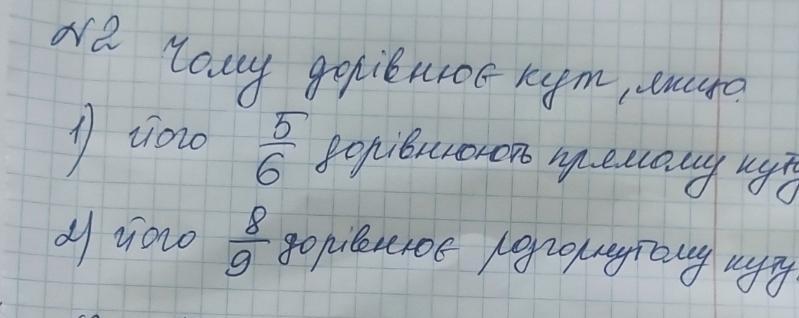 №2 Чому дорівнює кут, якщо
1) його 5/6 дорівнюють прямому куту
2) його 8/9 дорівнює розгорнутому куту.